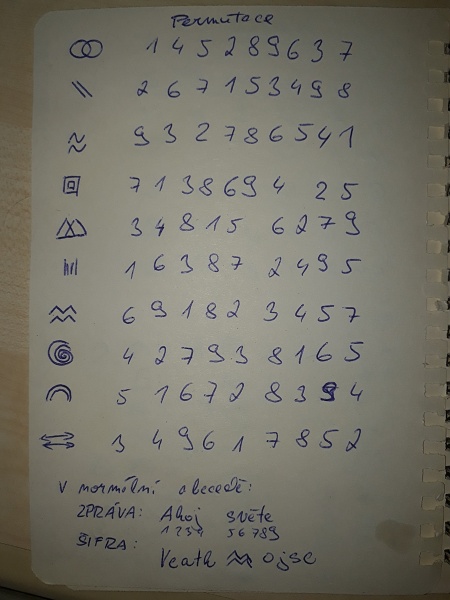 Permutace
1 4 5 2 8 9 6 3 7
2 6 7 1 5 3 4 9 8
9 3 2 7 8 6 5 4 1
7 1 3 8 6 9 4 2 5
3 4 8 1 5 6 2 7 9
1 6 3 8 7 2 4 9 5
6 9 1 8 2 3 4 5 7
4 2 7 9 3 8 1 6 5
5 1 6 7 2 8 3 9 4
3 4 9 6 1 7 8 5 2
V normální abecedě:
ZPRÁVA: Ahoj světe
1234 56789
ŠIFRA:
Veath ojse